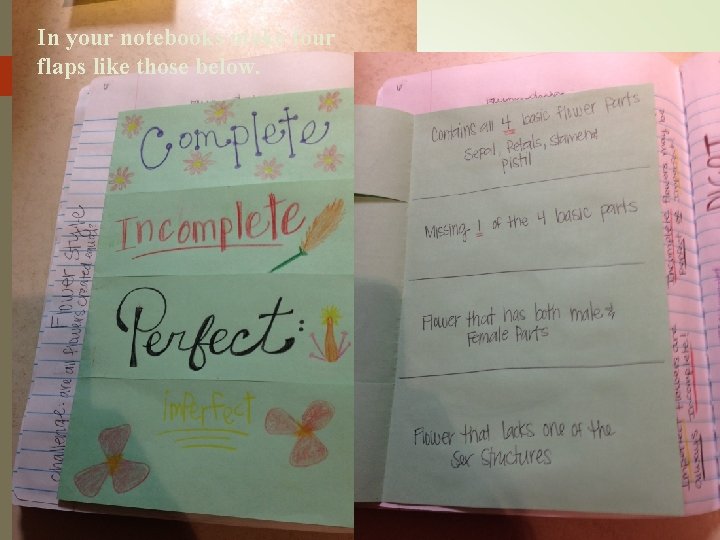 In your notebooks make four
flaps like those below.
Flower Style
challenge: are all flowers created equal?
Complete
Incomplete
Perfect:
imperfect
Contains all 4 basic flower parts
Sepal, Petals, stamen &
Pistil
Missing 1 of the 4 basic parts
Flower that has both male &
Female Parts
Flower that lacks one of the
Sex structures
Incomplete flowers may be
Imperfect flowers are
always Incomplete!